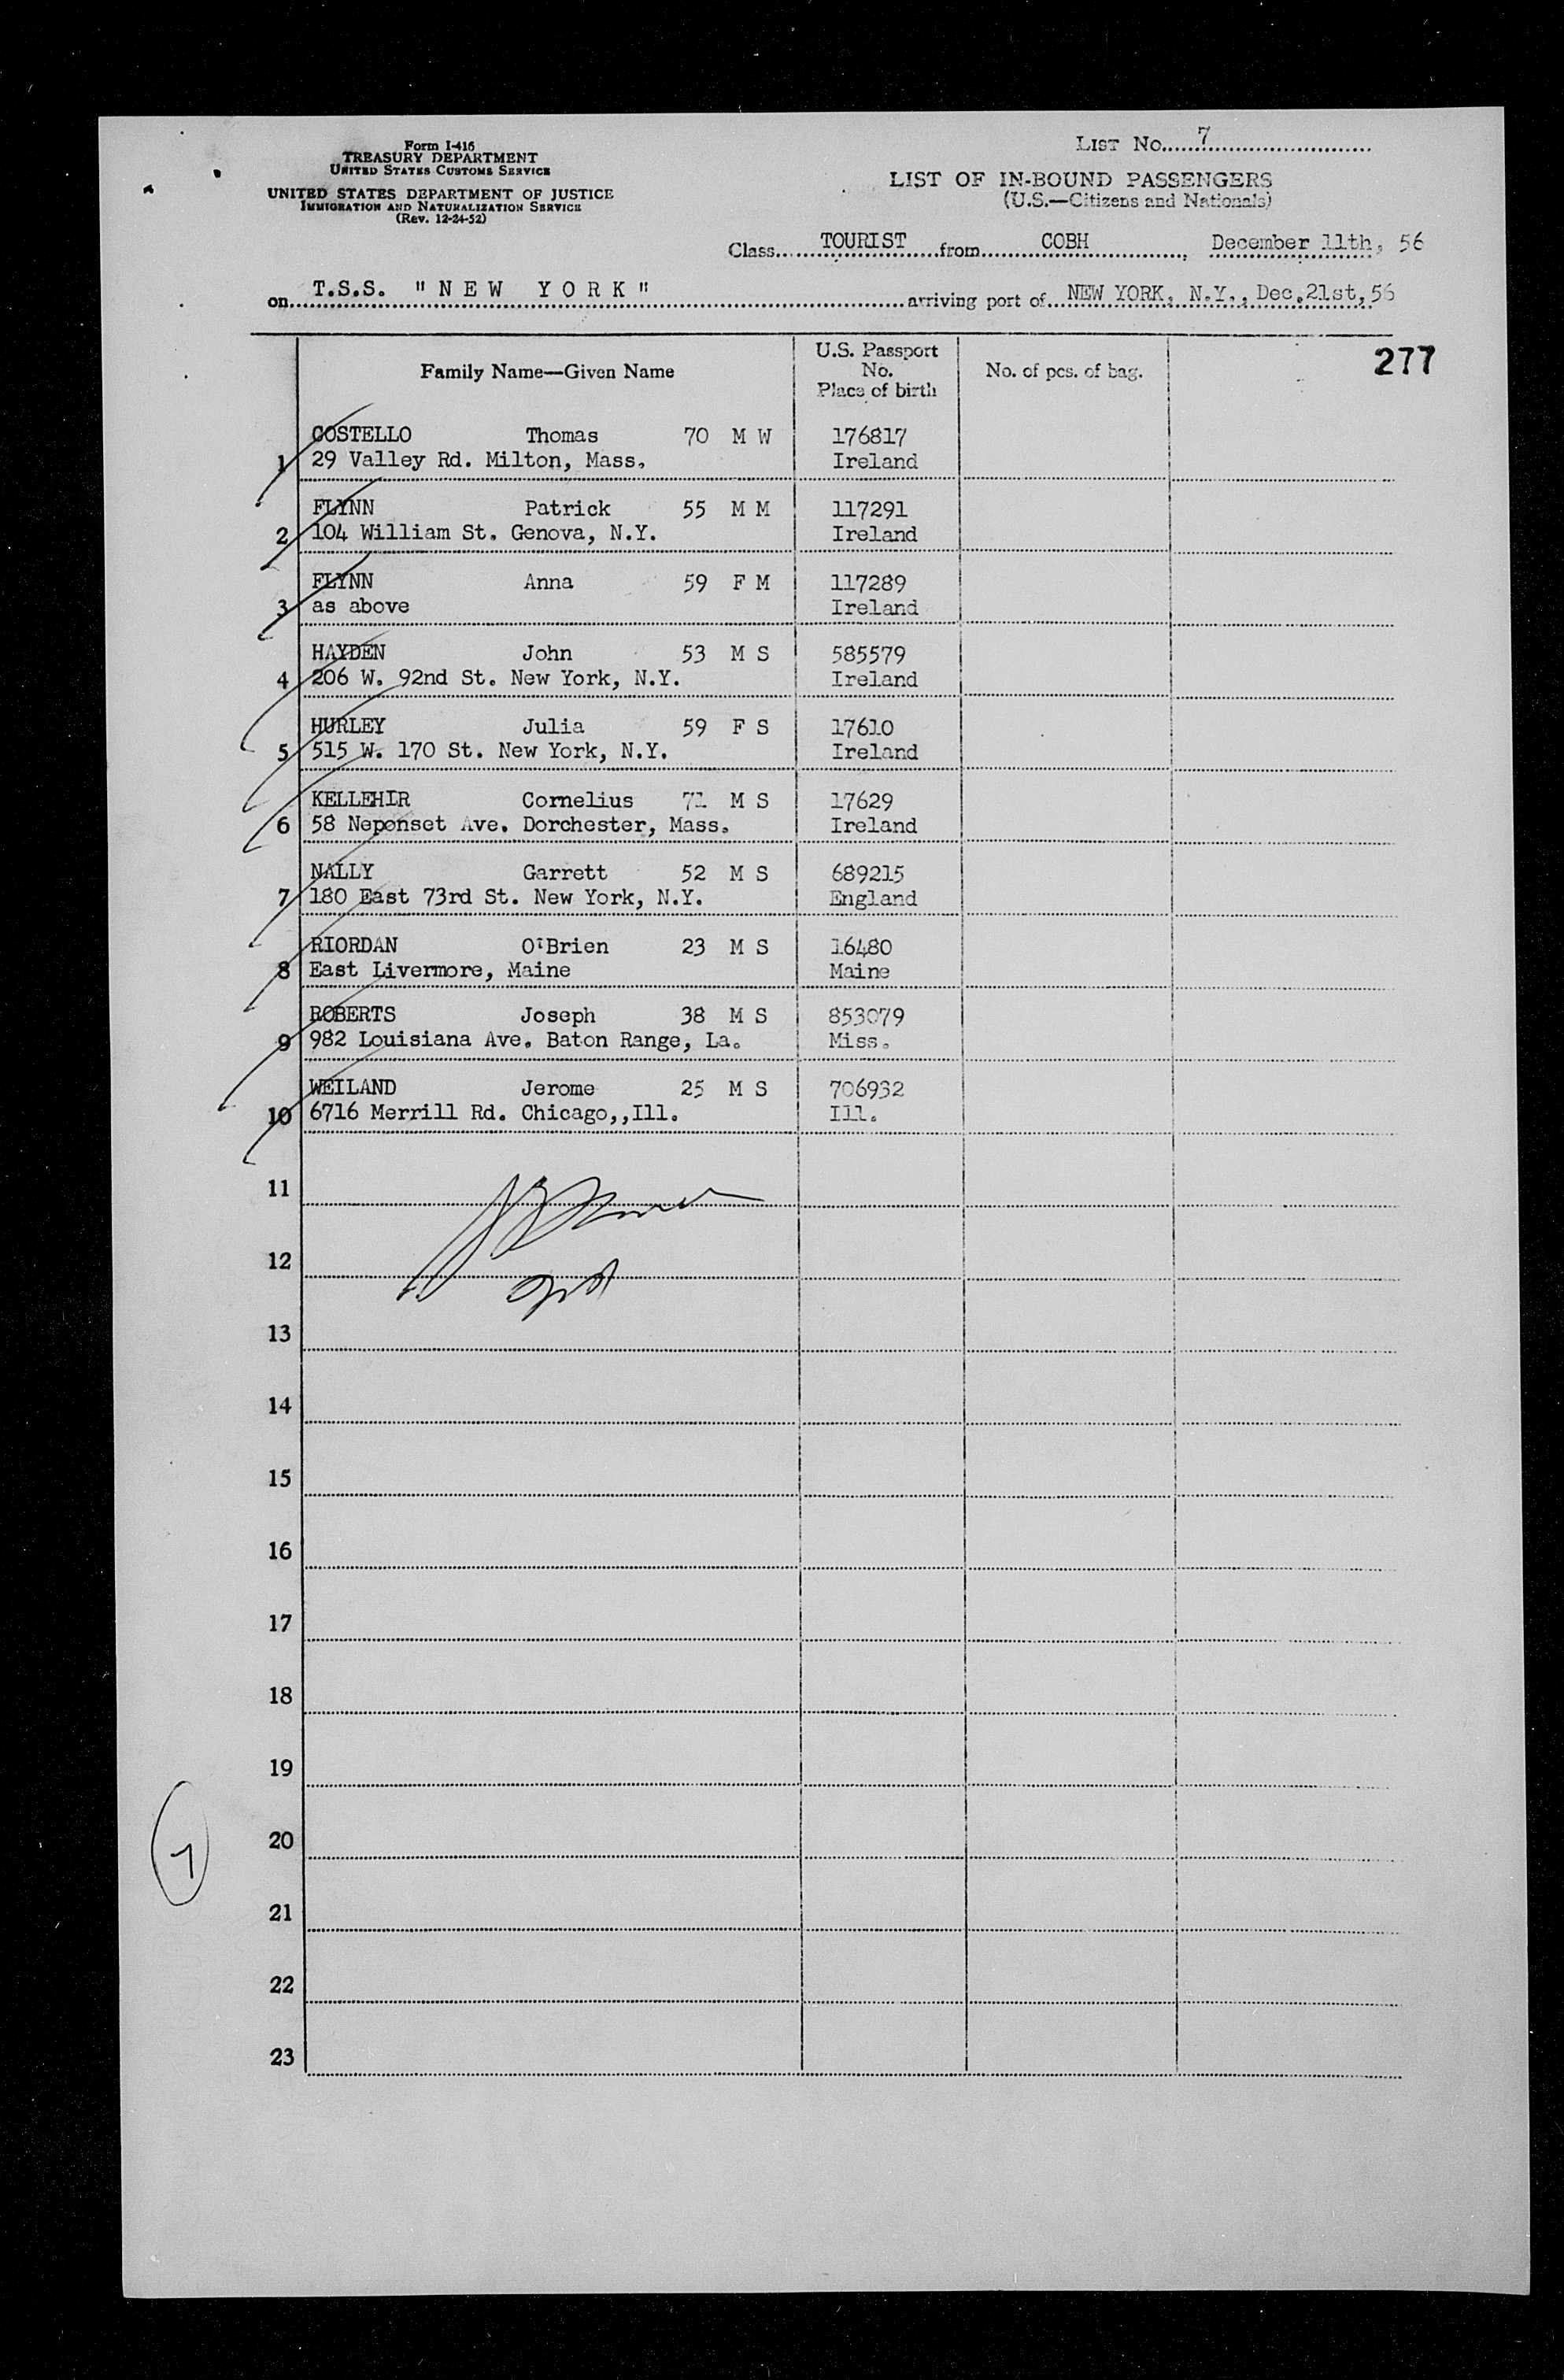 Form I-416
TREASURY DEPARTMENT
UNITED STATES CUSTOMS SERVICE
UNITED STATES DEPARTMENT OF JUSTICE
IMMIGRATION AND NATURALIZATION SERVICE
(Rev. 12-24-52)
LIST No. 7
LIST OF IN-BOUND PASSENGERS
(U.S.—Citizens and Nationals)
Class TOURIST from COBH, December 11th, 56
on T.S.S. "NEW YORK" arriving port of NEW YORK, N.Y., Dec.21st,56
277
Family Name—Given Name U.S. Passport No. Place of birth No. of pcs. of bag.
COSTELLO Thomas 70 M W 176817
1 29 Valley Rd. Milton, Mass. Ireland
FLYNN Patrick 55 M M 117291
2 104 William St. Genova, N.Y. Ireland
FLYNN Anna 59 F M 117289
3 as above Ireland
HAYDEN John 53 M S 585579
4 206 W. 92nd St. New York, N.Y. Ireland
HURLEY Julia 59 F S 17610
5 515 W. 170 St. New York, N.Y. Ireland
KELLEHIR Cornelius 71 M S 17629
6 58 Neponset Ave. Dorchester, Mass. Ireland
NALLY Garrett 52 M S 689215
7 180 East 73rd St. New York, N.Y. England
RIORDAN O'Brien 23 M S 16480
8 East Livermore, Maine Maine
ROBERTS Joseph 38 M S 853079
9 982 Louisiana Ave. Baton Range, La. Miss.
WEILAND Jerome 25 M S 706932
10 6716 Merrill Rd. Chicago,,Ill. Ill.
11
12
13
14
15
16
17
18
19
20
7
21
22
23